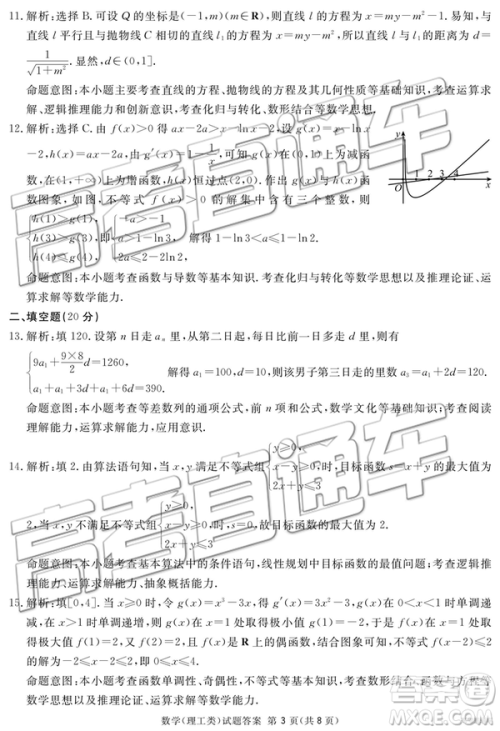 11. 解析:选择 B. 可设 Q 的坐标是(-1,m)(m∈R),则直线 l 的方程为 x=my-1. 易知,与
直线 l 平行且与抛物线 C 相切的直线 l₁ 的方程为 x=my-m²,所以直线 l 与 l₁ 的距离为 d=
1/√(1+m²). 显然,d∈(0,1].
命题意图:本小题主要考查直线的方程、抛物线的方程及其几何性质等基础知识,考查运算求
解、逻辑推理能力和创新意识,考查化归与转化、数形结合等数学思想.
12. 解析:选择 C. 由 f(x)>0 得 ax-2a>x-lnx-2,设 g(x)=x-lnx
-2,h(x)=ax-2a,由 g′(x)=1-1/x,可知 g(x)在(0,1)上为减函
数,在(1,+∞)上为增函数,h(x)恒过点(2,0). 作出 g(x)与 h(x)
函数图象,如图,不等式 f(x)>0 的解集中含有三个整数,则
{h(1)>g(1), h(3)>g(3), h(4)≤g(4), 即 {-a>-1 a>1-ln3 2a≤2-2ln2 解得 1-ln3<a≤1-ln2.
命题意图:本小题考查函数与导数等基本知识. 考查化归与转化等数学思想以及推理论证、运
算求解等数学能力.
二、填空题(20 分)
13. 解析:填 120. 设第 n 日走 aₙ 里,从第二日起,每日比前一日多走 d 里,则有
{9a₁+(9×8/2)d=1260, a₁+a₁+3d+a₁+6d=390. 解得 a₁=100,d=10,则该男子第三日走的里数 a₃=a₁+2d=120.
命题意图:本小题考查等差数列的通项公式,前 n 项和,数学文化等基础知识;考查阅读
理解能力,运算求解能力,应用意识.
14. 解析:填 2. 由算法语句知,当 x,y 满足不等式组 {y≥0, x-y≥0, 2x+y≤3 时,目标函数 s=x+y 的最大值为
2,当 x,y 不满足不等式组 {y≥0, x-y≥0, 2x+y≤3 时,s=0,故目标函数的最大值为 2.
命题意图:本小题考查基本算法中的算法语句、线性规划中目标函数的最值问题;考查
运算求解能力、抽象概括能力.
15. 解析:填[0,4]. 当 x≥0 时,令 g(x)=x³-3x,得 g′(x)=3x²-3,在 0<x<1 时单调递
减,在 x>1 时单调递增,则 f(x)在 0<x<1 时单调递增,在 x>1 时单调递减,从而在 x=1 处取
得极大值 f(1)=2,又 f(2)=-2,由于 f(x)是 R 上的偶函数,结合图象可知,不等式 f(x-2)≤2
的解为-2≤x-2≤2,即 0≤x≤4.
命题意图:本小题考查函数单调性、奇偶性,不等式等基础知识;考查数形结合、函数与方程
等数学思想以及推理论证、运算求解等数学能力.
数学(理工类)试题答案 第 3 页(共 8 页)
高考直通车
高考直通车